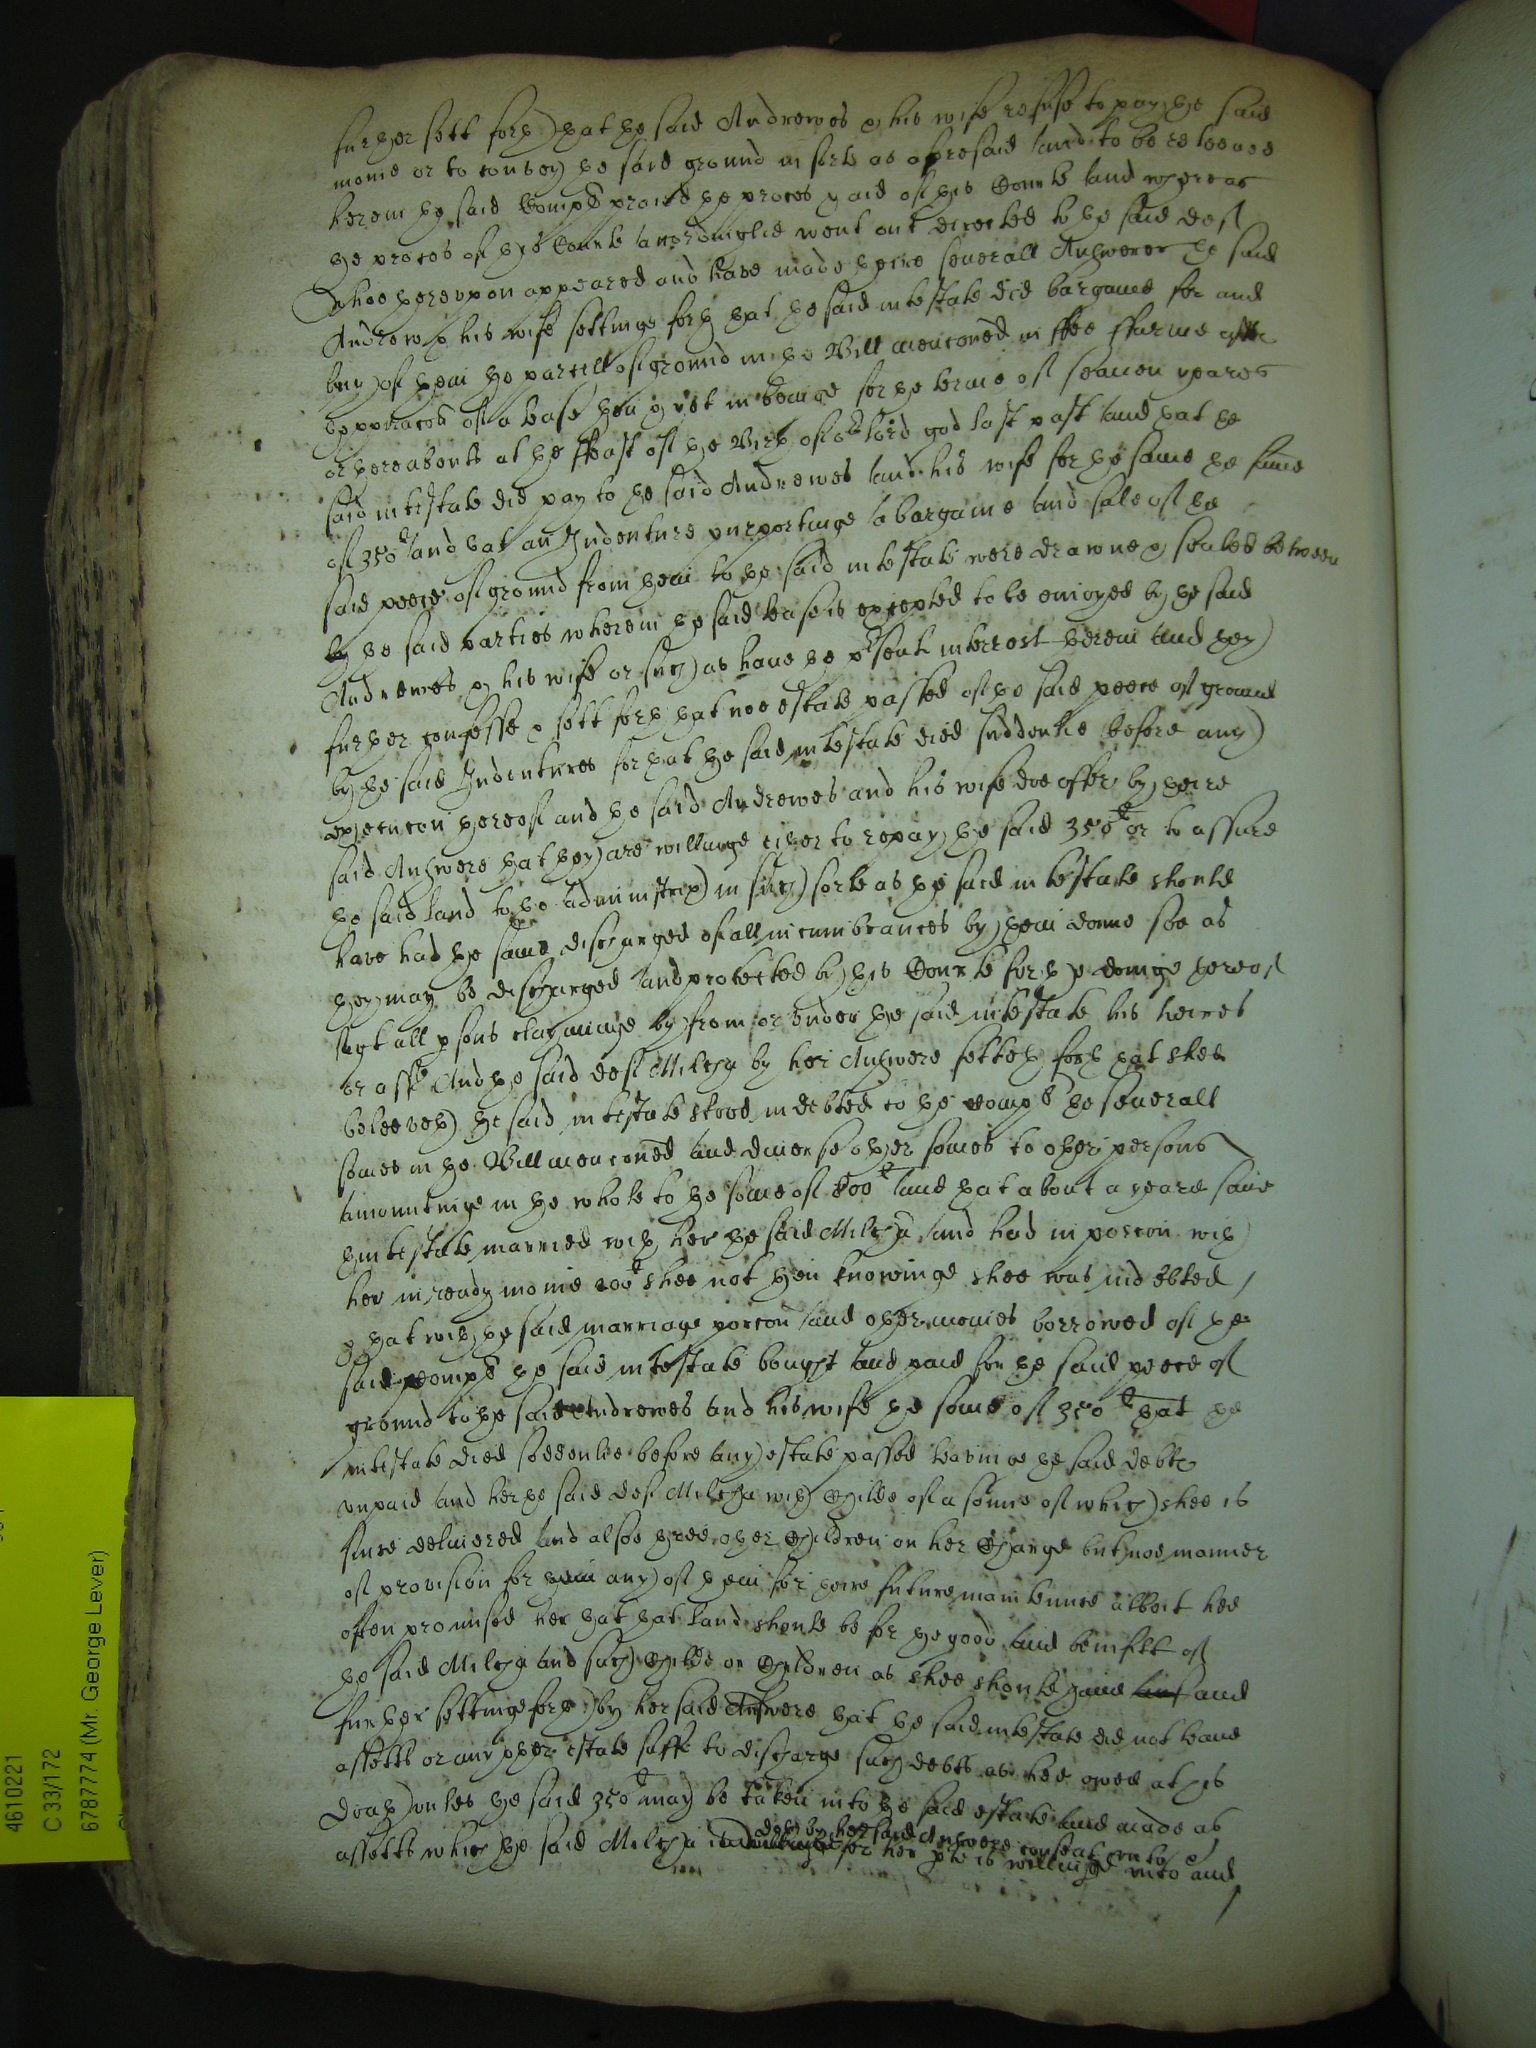 further sett forth that the said Andrewes & his wife refuse to pay the said
monie or to convey the said ground in sorte as aforesaid and to be releeved
herein the said Compl^t praied the proces & aid of this Courte and whereas
the proces of this Courte accordinglie went out directed to the said def
whoe thereupon appeared and have made theire severall Answeres the said
Andrewes & his wife settinge forth that the said intestate did bargaine for and
buy of them the parcell of ground in the Bill mencioned in ffee ffarme after
thexpiracon of a lease then & yet in beinge for the terme of seaven yeares
or thereabouts at the ffeast of the Birth of o^r lord god last past and that the
said intestate did pay to the said Andrewes and his wife for the same the summe
of 350^li and that an Indenture purportinge a bargaine and sale of the
said peece of ground from them to the said intestate were drawne & sealed betweene
by the said parties wherein the said lease is excepted to be enioyed by the said
Andrewes & his wife or such as have the p^rsent interrest therein and they
further confesse & sett forth that noe estate passed of the said peece of ground
by the said Indentures for that the said intestate died suddenlie before any
execucon thereof and the said Andrewes and his wife doe offer by theire
said Answere that they are willinge either to repay the said 350^li or to assure
the said land to the administr^x in such sorte as the said intestate should
have had the same discharged of all incumbrances by them donne soe as
they may be discharged and protected by this Courte for the doinge thereof
ag^t all p^sons clayminge by from or under the said intestate his heires
or ass^s And the said def Milcha by her Answere setteth forth that shee
beleeveth the said intestate stood indebted to the compl^t the severall
somes in the Bill mencioned and diverse other somes to other persons
amountinge in the whole to the some of 500^li and that about a yeare since
thintestate married with her the said Milcha and had in porcon with
her in ready monie 200^li shee not then knowinge shee was indebted
& that with the said marriage porcon and other monies borrowed of the
said compl^t the said intestate bought and paid for the said peece of
ground to the said Andrewes and his wife the some of 350^li that the
intestate died soddenlie before any estate passed leavinge the said debts
unpaid and her the said def Milcha with Childe of a sonne of which shee is
since delivered and alsoe three other Children on her Charge but noe manner
of provision for them any of them for theire future maintennce albeit hee
often promised her that that land should be for the good and benifitt of
the said Milcha and such Childe or Children as shee should have and
further settinge forth by her said Answere that the said intestate did not leave
assetts or any other estate suff^t to discharge such debts as hee owed at his
death unles the said 350^li may be taken into the said estate and made as
doth by her said Answere consent unto &
assetts which the said Milcha for her p^te is willinge unto and
4610221
C 33/172
6787774 (Mr. George Lever)